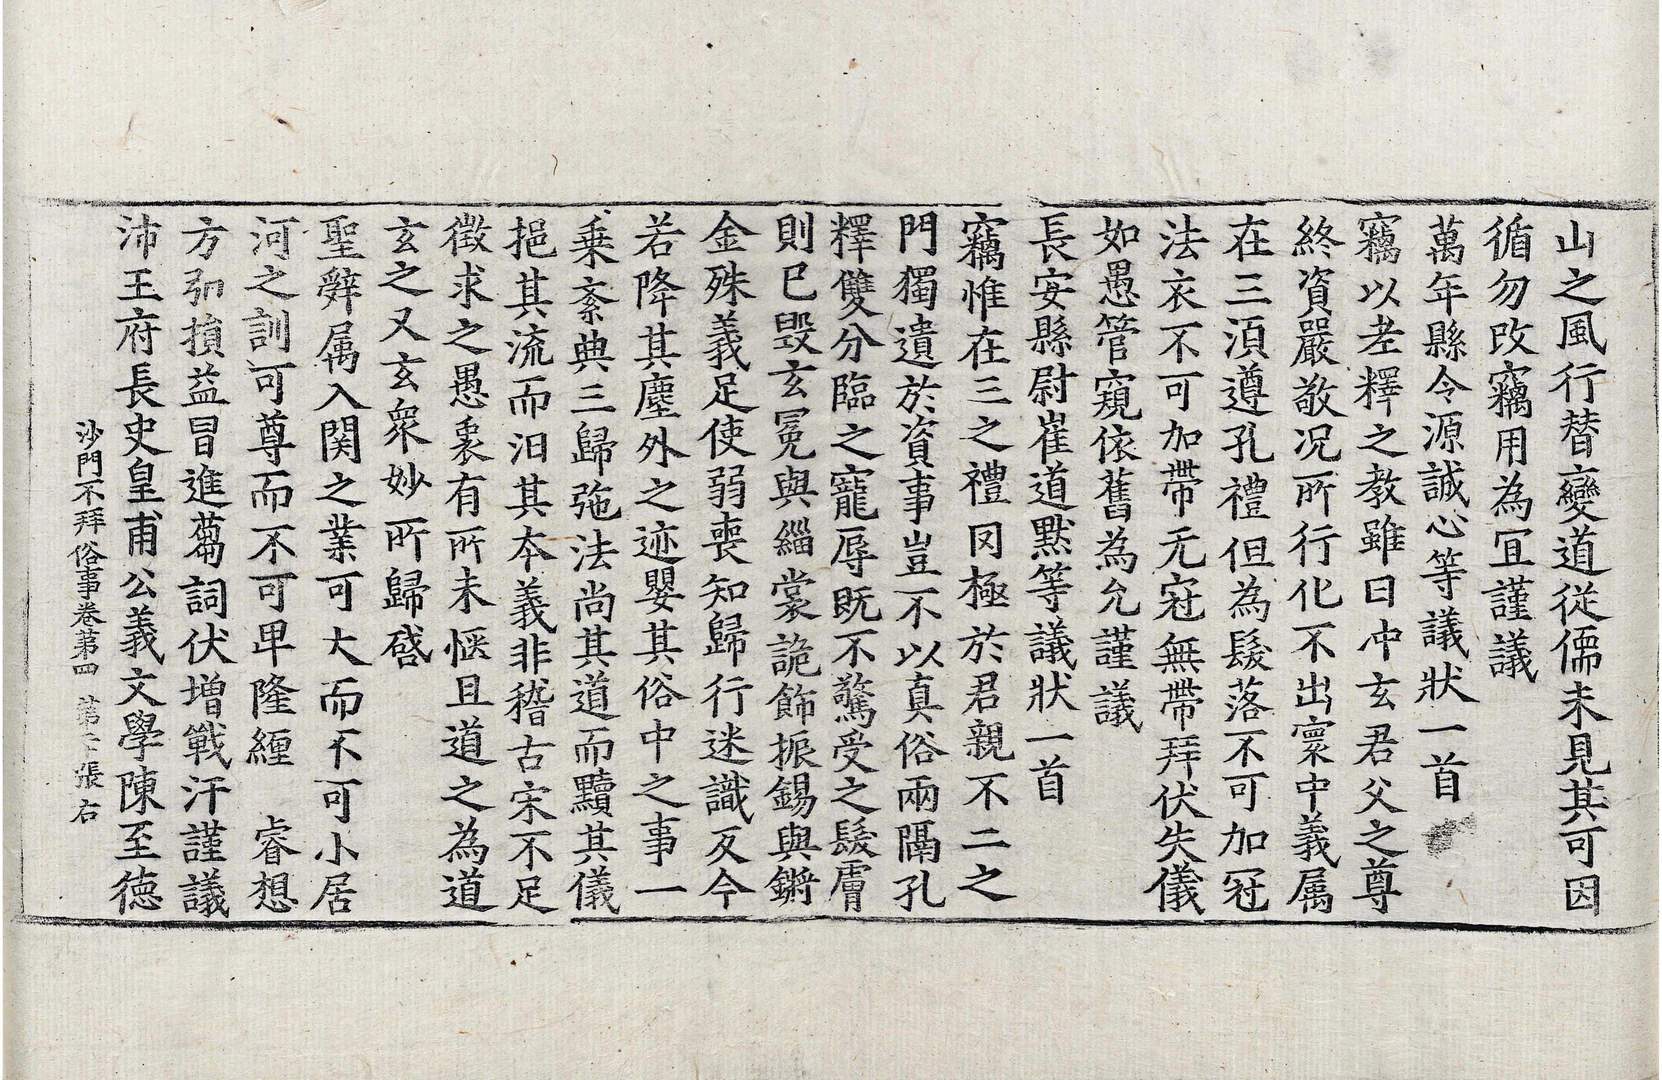 山之風行替變道從儒未見其可因
循勿改竊用為宜謹議
萬年縣令源誠心等議狀一首
竊以老釋之教雖曰冲玄君父之尊
終資嚴敬况所行化不出寰中義属
在三湏遵孔禮但為髮落不可加冠
法衣不可加帶无冠無帶拜伏失儀
如愚管窺依舊為允謹議
長安縣尉崔道默等議狀一首
竊惟在三之禮罔極於君親不二之
門獨遺於資事豈不以真俗兩隔孔
釋雙分臨之寵辱既不驚受之髮膚
則已毀玄冕與緇裳詭飾振錫與鏘
金殊義足使弱喪知歸行迷識反今
若降其塵外之迹嬰其俗中之事一
乗紊典三歸㢮法尚其道而黷其儀
挹其流而汩其夲義非稽古宋不足
徵求之愚衷有所未愜且道之為道
玄之又玄衆妙所歸啓
聖辤属入関之業可大而不可小居
河之訓可尊而不可卑隆緾　睿想
方弘損益冒進蒭詞伏增戰汗謹議
沛王府長史皇甫公義文學陳至德
沙門不拜俗事卷苐四　苐二十張右